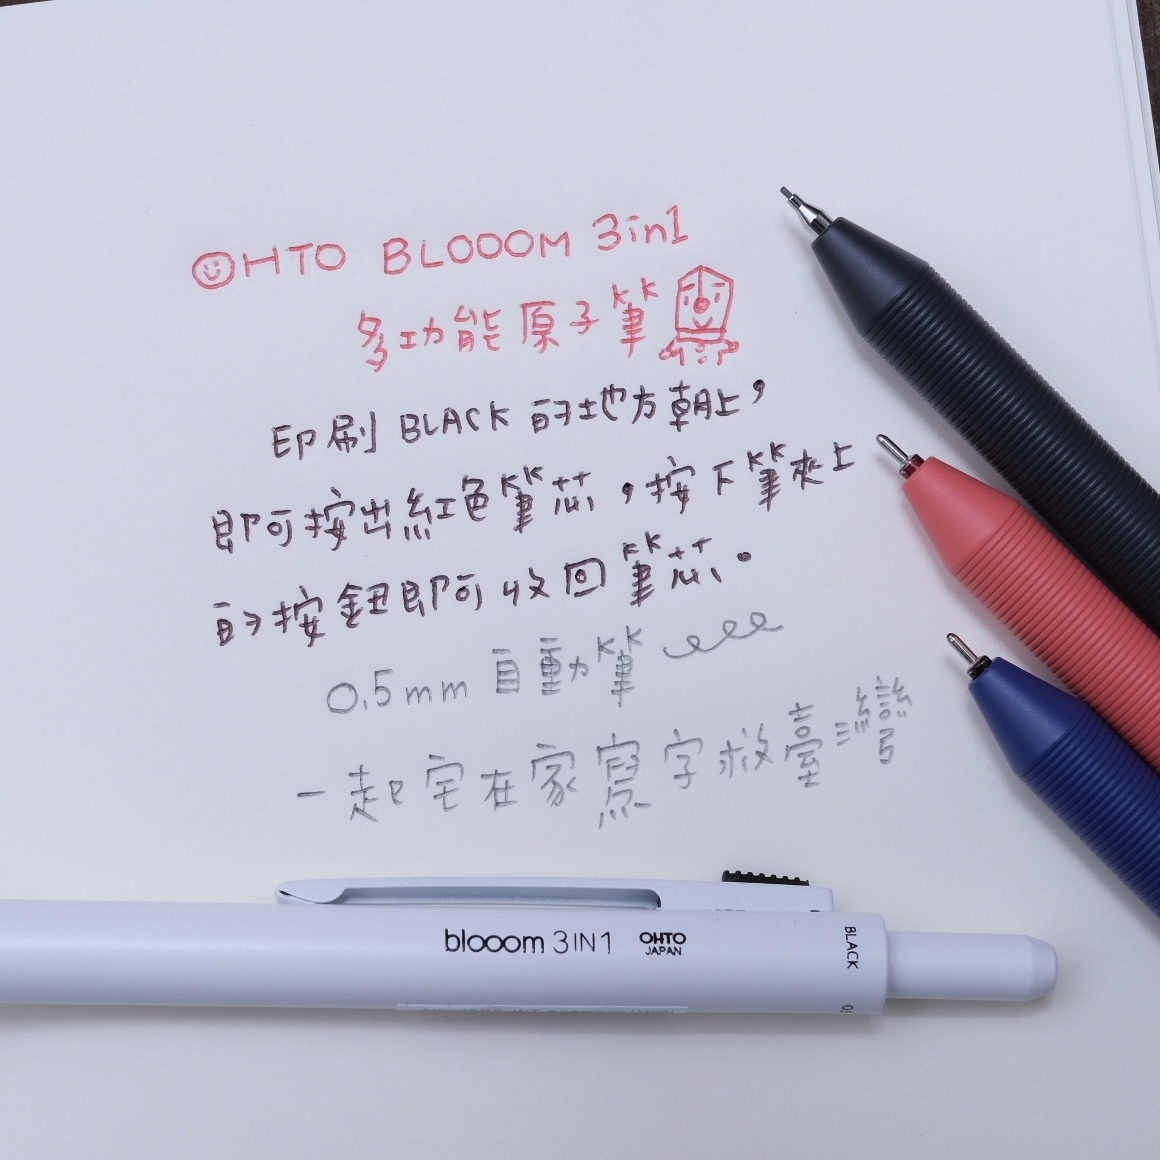 OHTO BLOOOM 3in1
多功能原子筆
印刷 BLACK 的地方朝上，
即可按出紅色筆芯，按下筆夾上
的按鈕即可收回筆芯。
0.5mm 自動筆
一起宅在家寫字救臺灣
blooom 3IN1 OHTO JAPAN
BLACK